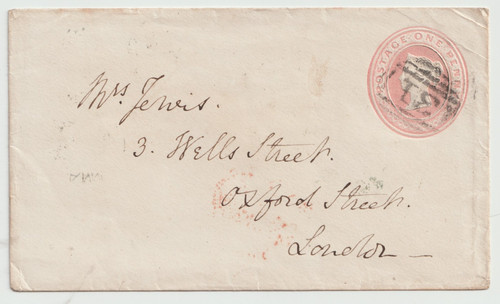 POSTAGE ONE PENNY
Mrs. Jervis.
3. Wells Street.
Oxford Street.
London